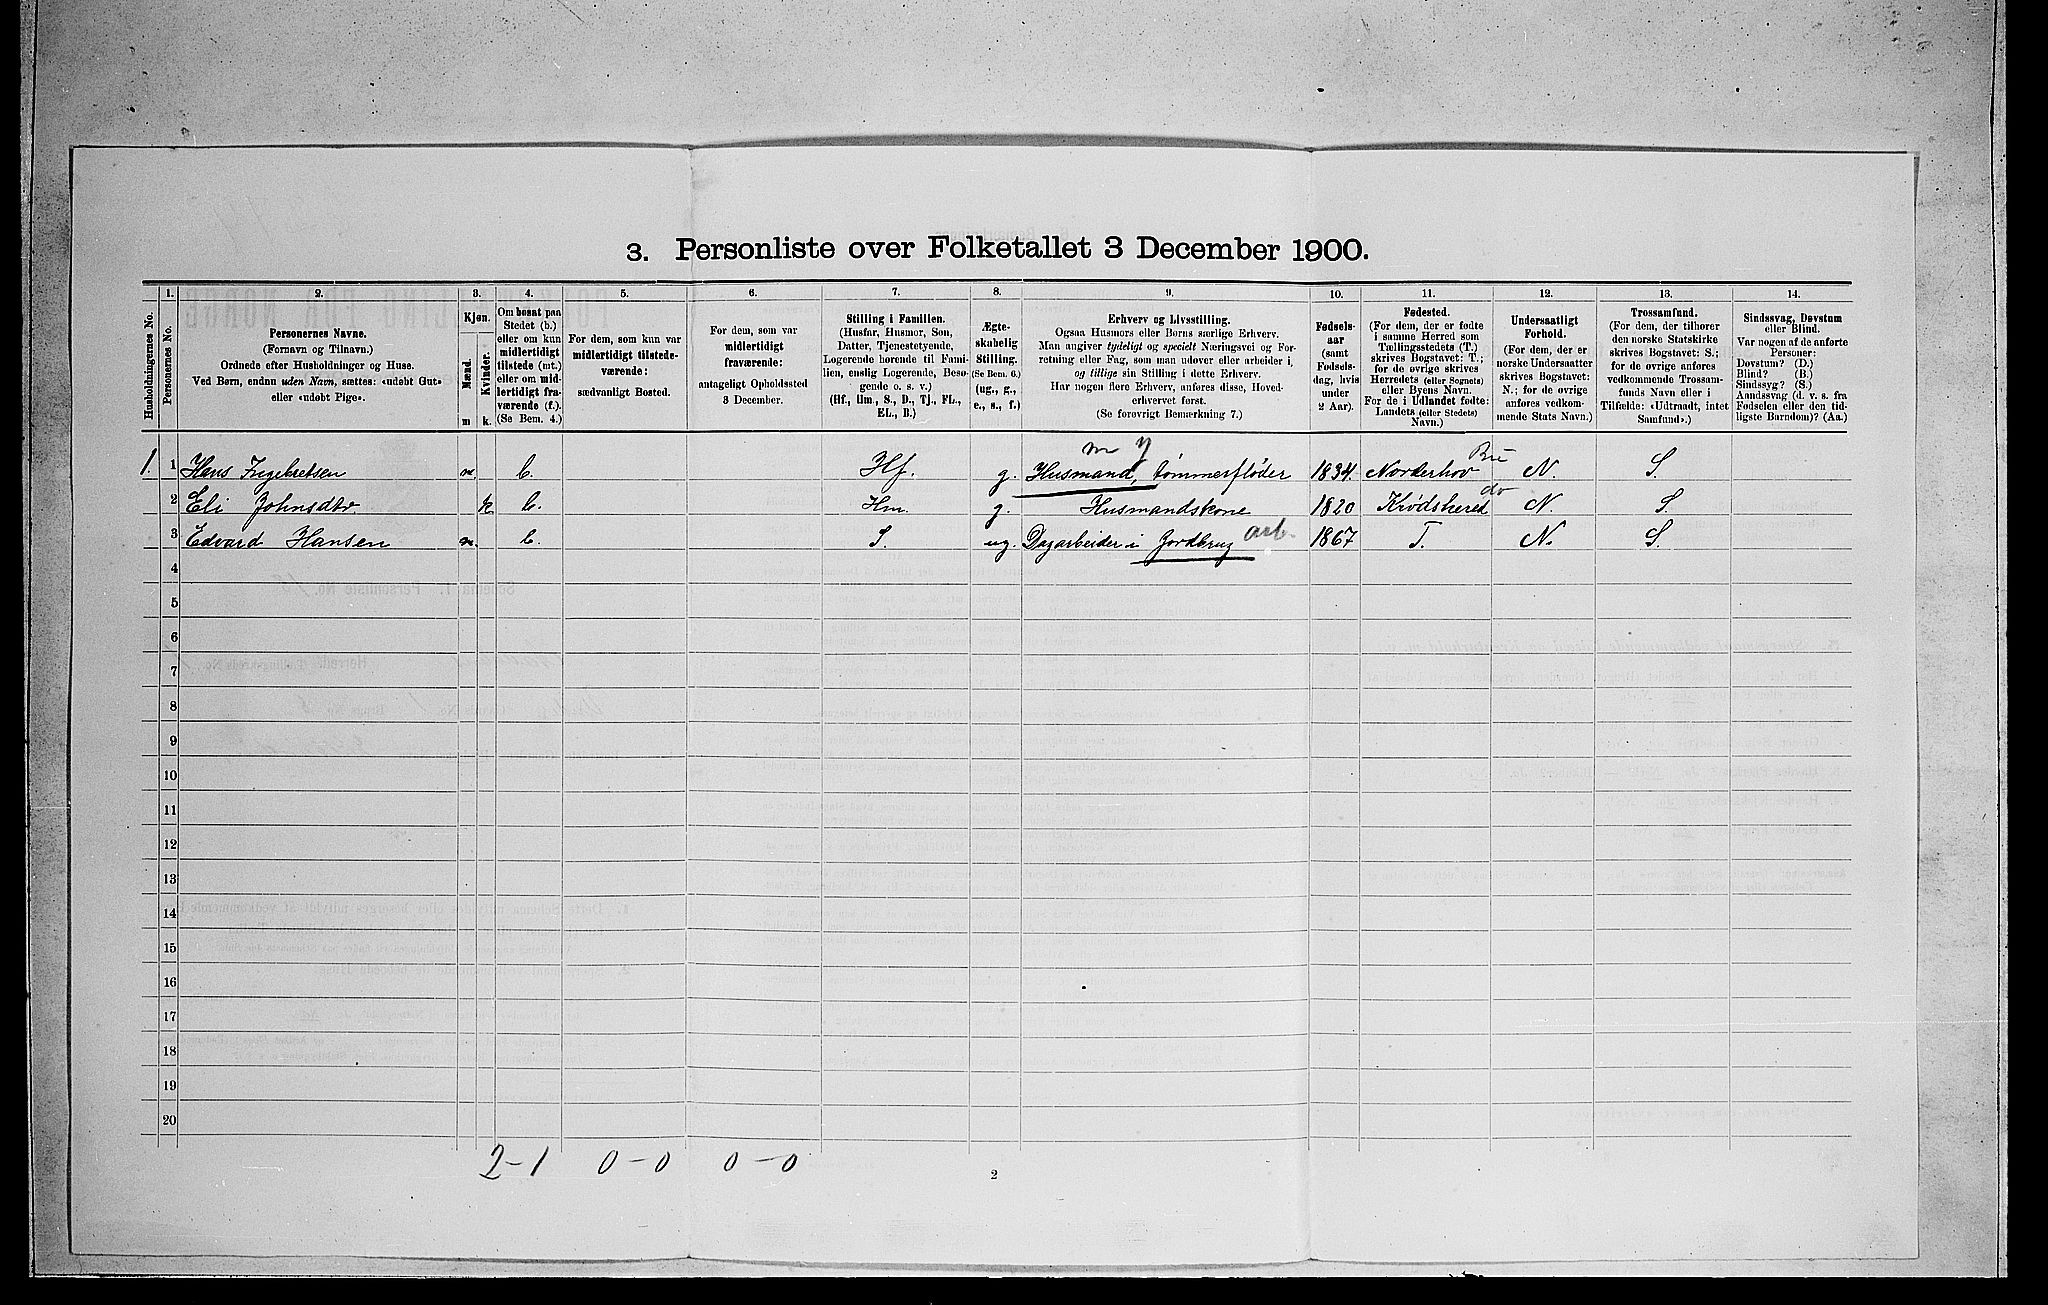 3. Personliste over Folketallet 3 December 1900.
1. 2. 3. 4. 5. 6. 7. 8. 9. 10. 11. 12. 13. 14.
Husholdningernes No.
Personernes No.
Personernes Navne.
(Fornavn og Tilnavn.)
Ordnede efter Husholdninger og Huse.
Ved Børn, endnu uden Navn, sættes: «udøbt Gut»
eller «udøbt Pige».
Kjøn.
Mænd.
Kvinder.
m k.
Om bosat paa
Stedet (b.)
eller om kun
midlertidigt
tilstede (mt.)
eller om mid-
lertidigt fra-
værende (f.).
(Se Bem. 4.)
For dem, som kun var
midlertidigt tilstede-
værende:
sædvanligt Bosted.
For dem, som var
midlertidigt
fraværende:
antageligt Opholdssted
3 December.
Stilling i Familien.
(Husfar, Husmor, Søn,
Datter, Tjenestetyende,
Logerende hørende til Fami-
lien, enslig Logerende, Besø-
gende o. s. v.)
(Hf, Hm, S., D., Tj., FL.,
EL., B.)
Ægte-
skabelig
Stilling.
(Se Bem. 6.)
(ug., g.,
e., s., f.)
Erhverv og Livsstilling.
Ogsaa Husmors eller Børns særlige Erhverv.
Man angiver tydeligt og specielt Næringsvei og For-
retning eller Fag, som man udøver eller arbeider i,
og tillige sin Stilling i dette Erhverv.
Har nogen flere Erhverv, anføres disse, Hoved-
erhvervet først.
(Se forøvrigt Bemærkning 7.)
Fødsels-
aar
(samt
Fødsels-
dag, hvis
under
2 Aar).
Fødested.
(For dem, der er fødte
i samme Herred som
Tællingsstedets (T.)
skrives Bogstavet: T.;
for de øvrige skrives
Herredets (eller Sognets)
eller Byens Navn.
For de i Udlandet fødte:
Landets (eller Stedets)
Navn.)
Undersaatligt
Forhold.
(For dem, der er
norske Undersaatter
skrives Bogstavet:
N.; for de øvrige
anføres vedkom-
mende Stats Navn.)
Trossamfund.
(For dem, der tilhører
den norske Statskirke
skrives Bogstavet: S.;
for de øvrige anføres
vedkommende Trossam-
funds Navn eller i
Tilfælde: «Udtraadt, intet
Samfund».)
Sindssvag, Døvstum
eller Blind.
Var nogen af de anførte
Personer:
Døvstum? (D.)
Blind? (B.)
Sindssyg? (S.)
Aandssvag (d. v. s. fra
Fødselen eller den tid-
ligste Barndom)? (Aa.)
m y Bu
1. 1 Hans Ingebretsen m. b. Hf. g. Husmand, tømmerfløder 1834. Norderhov N. S.
do
2 Eli Johnsdtr. k b. Hm. g. Husmandskone 1820 Krødsherred N. S.
3 Edvard Hansen m. b. S. ug. Dagarbeider i Jordbrug arb. 1867 T. N. S.
4
5
6
7
8
9
10
11
12
13
14
15
16
17
18
19
20
2-1 0-0 0-0
2